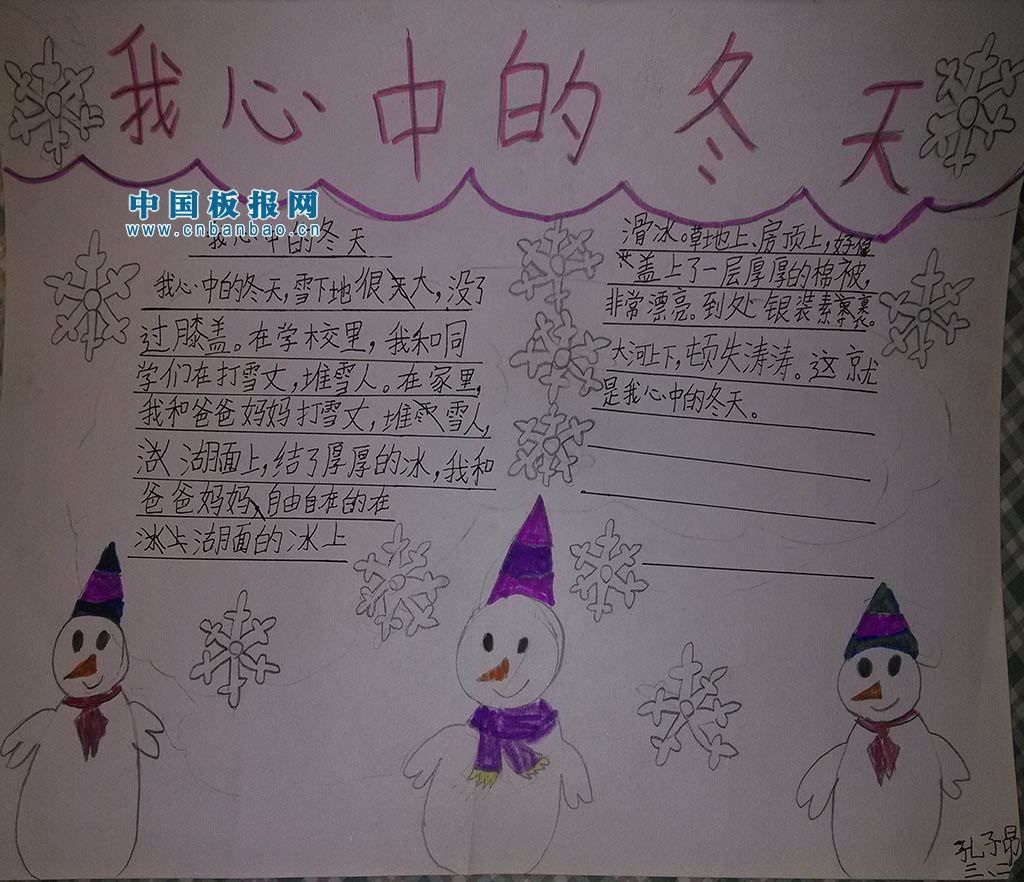 我心中的冬天
中国板报网
www.cnbanbao.cn
我心中的冬天
我心中的冬天，雪下地很大，没了
过膝盖。在学校里，我和同
学们在打雪丈，堆雪人。在家里，
我和爸爸妈妈打雪丈，堆雪人，
湖面上，结了厚厚的冰，我和
爸爸妈妈、自由自在的在
湖面的冰上
滑冰。草地上、房顶上，好像
盖上了一层厚厚的棉被，
非常漂亮。到处银装素裹。
大河上下，顿失涛涛。这就
是我心中的冬天。
孔子昂
三、二